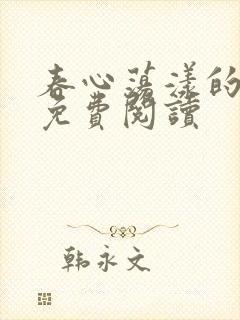 春心荡漾的
免費閱讀
韩永文